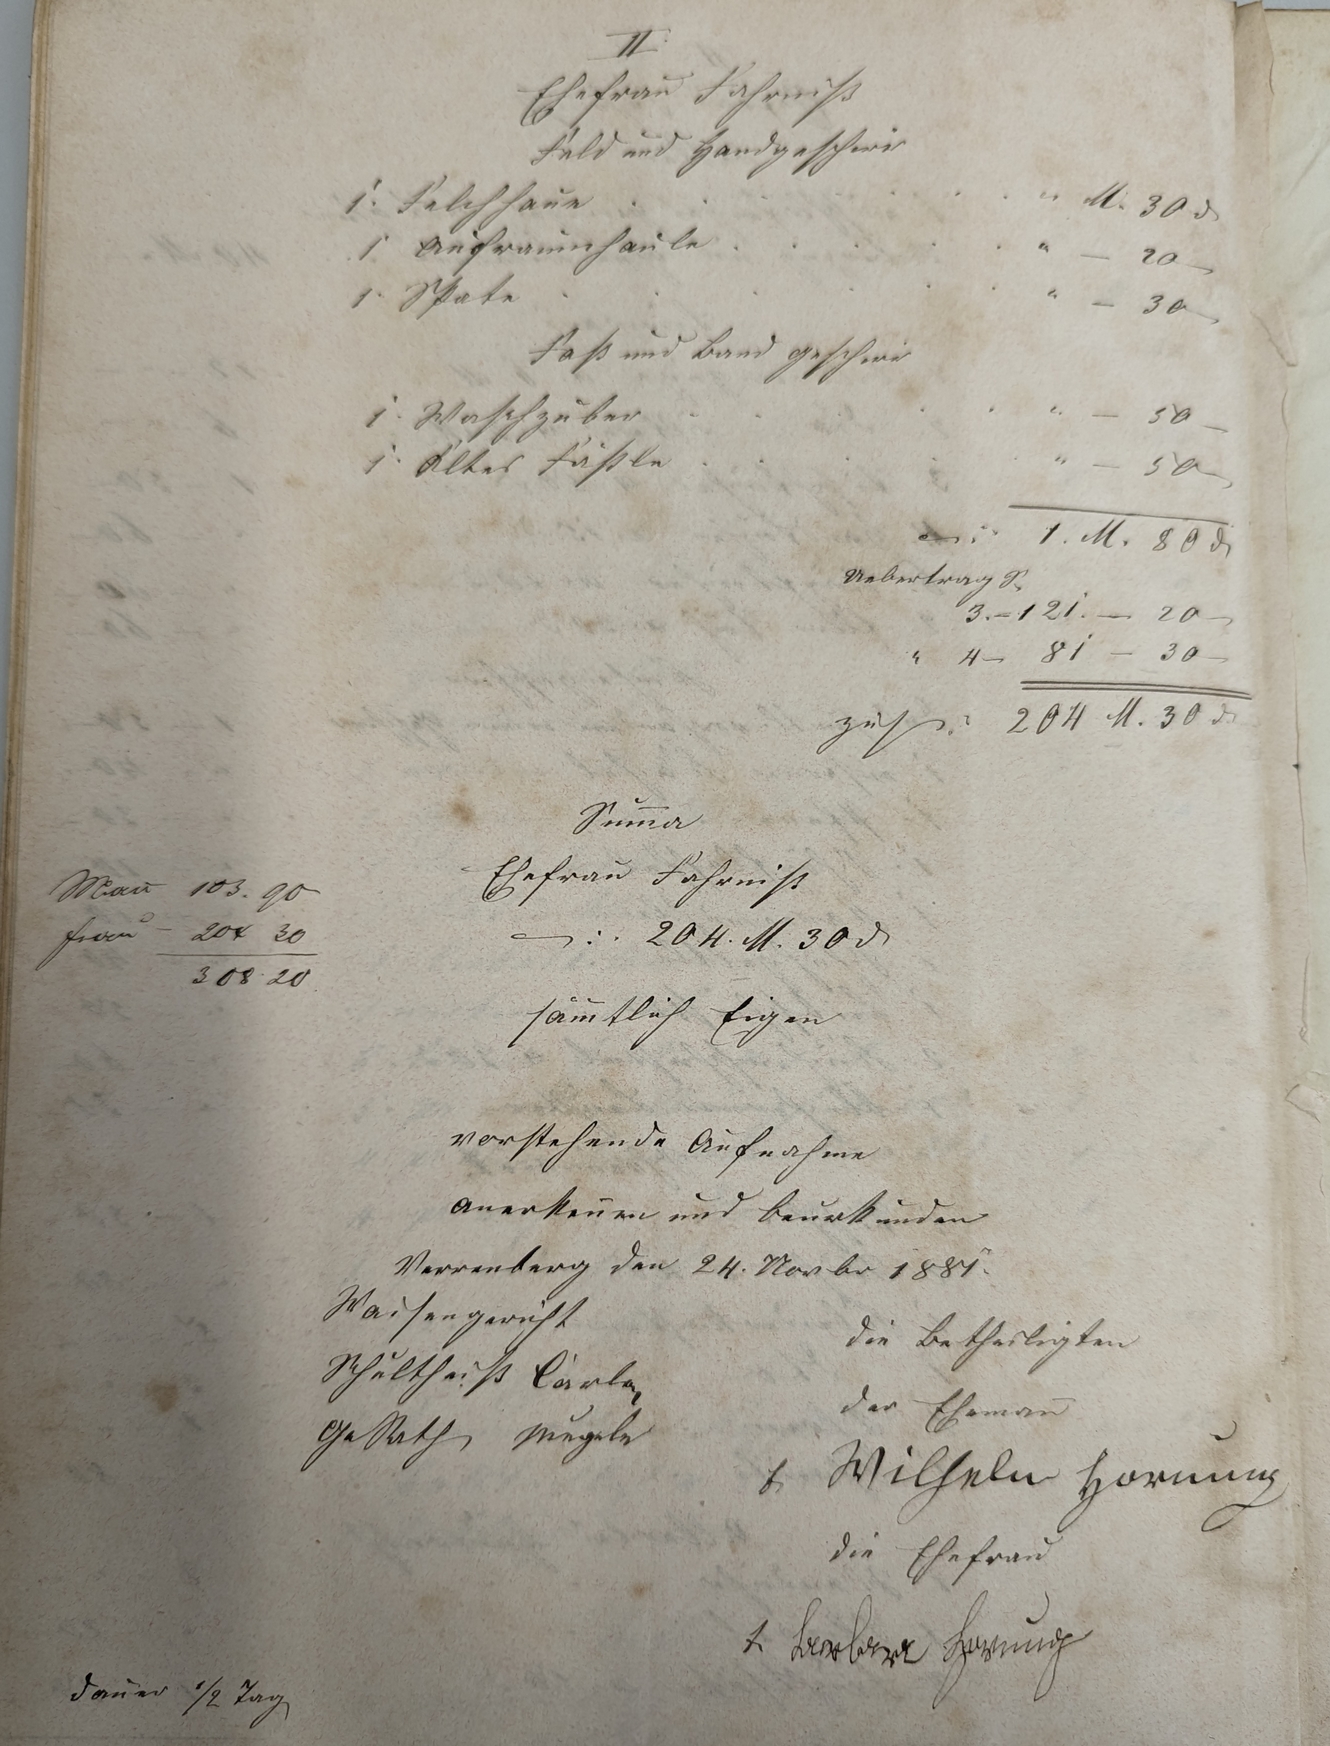 II
Ehefrau Fahrniß
Feld und Handgeschirr
1. Felghaue . . . . . . " M. 30 d
1 Aufraumhäule . . . . . " — 20 —
1. Spate . . . . . . " — 30 —
Faß und Band geschirr
1. Waschzuber . . . . . " — 50 —
1. Altes Fäßle . . . . . " — 50 —
: 1. M. 80 d
Uebertrag S.
3. — 121. — 20 —
" 4 — 81 — 30 —
zus: 204 M. 30 d
Summa
Ehefrau Fahrniß
: 204. M. 30 d
Mann 103. 90
Frau — 204 30
308. 20
sämtlich Eigen
vorstehende Aufnahme
anerkennen und beurkunden
Verrenberg den 24. Novbr 1881.
Waisengericht
Schultheiß Carle
GeRath
die Betheiligten
der Ehemann
t. Wilhelm Hornung
die Ehefrau
t. Barbara Hornung
Dauer 1/2 Tag